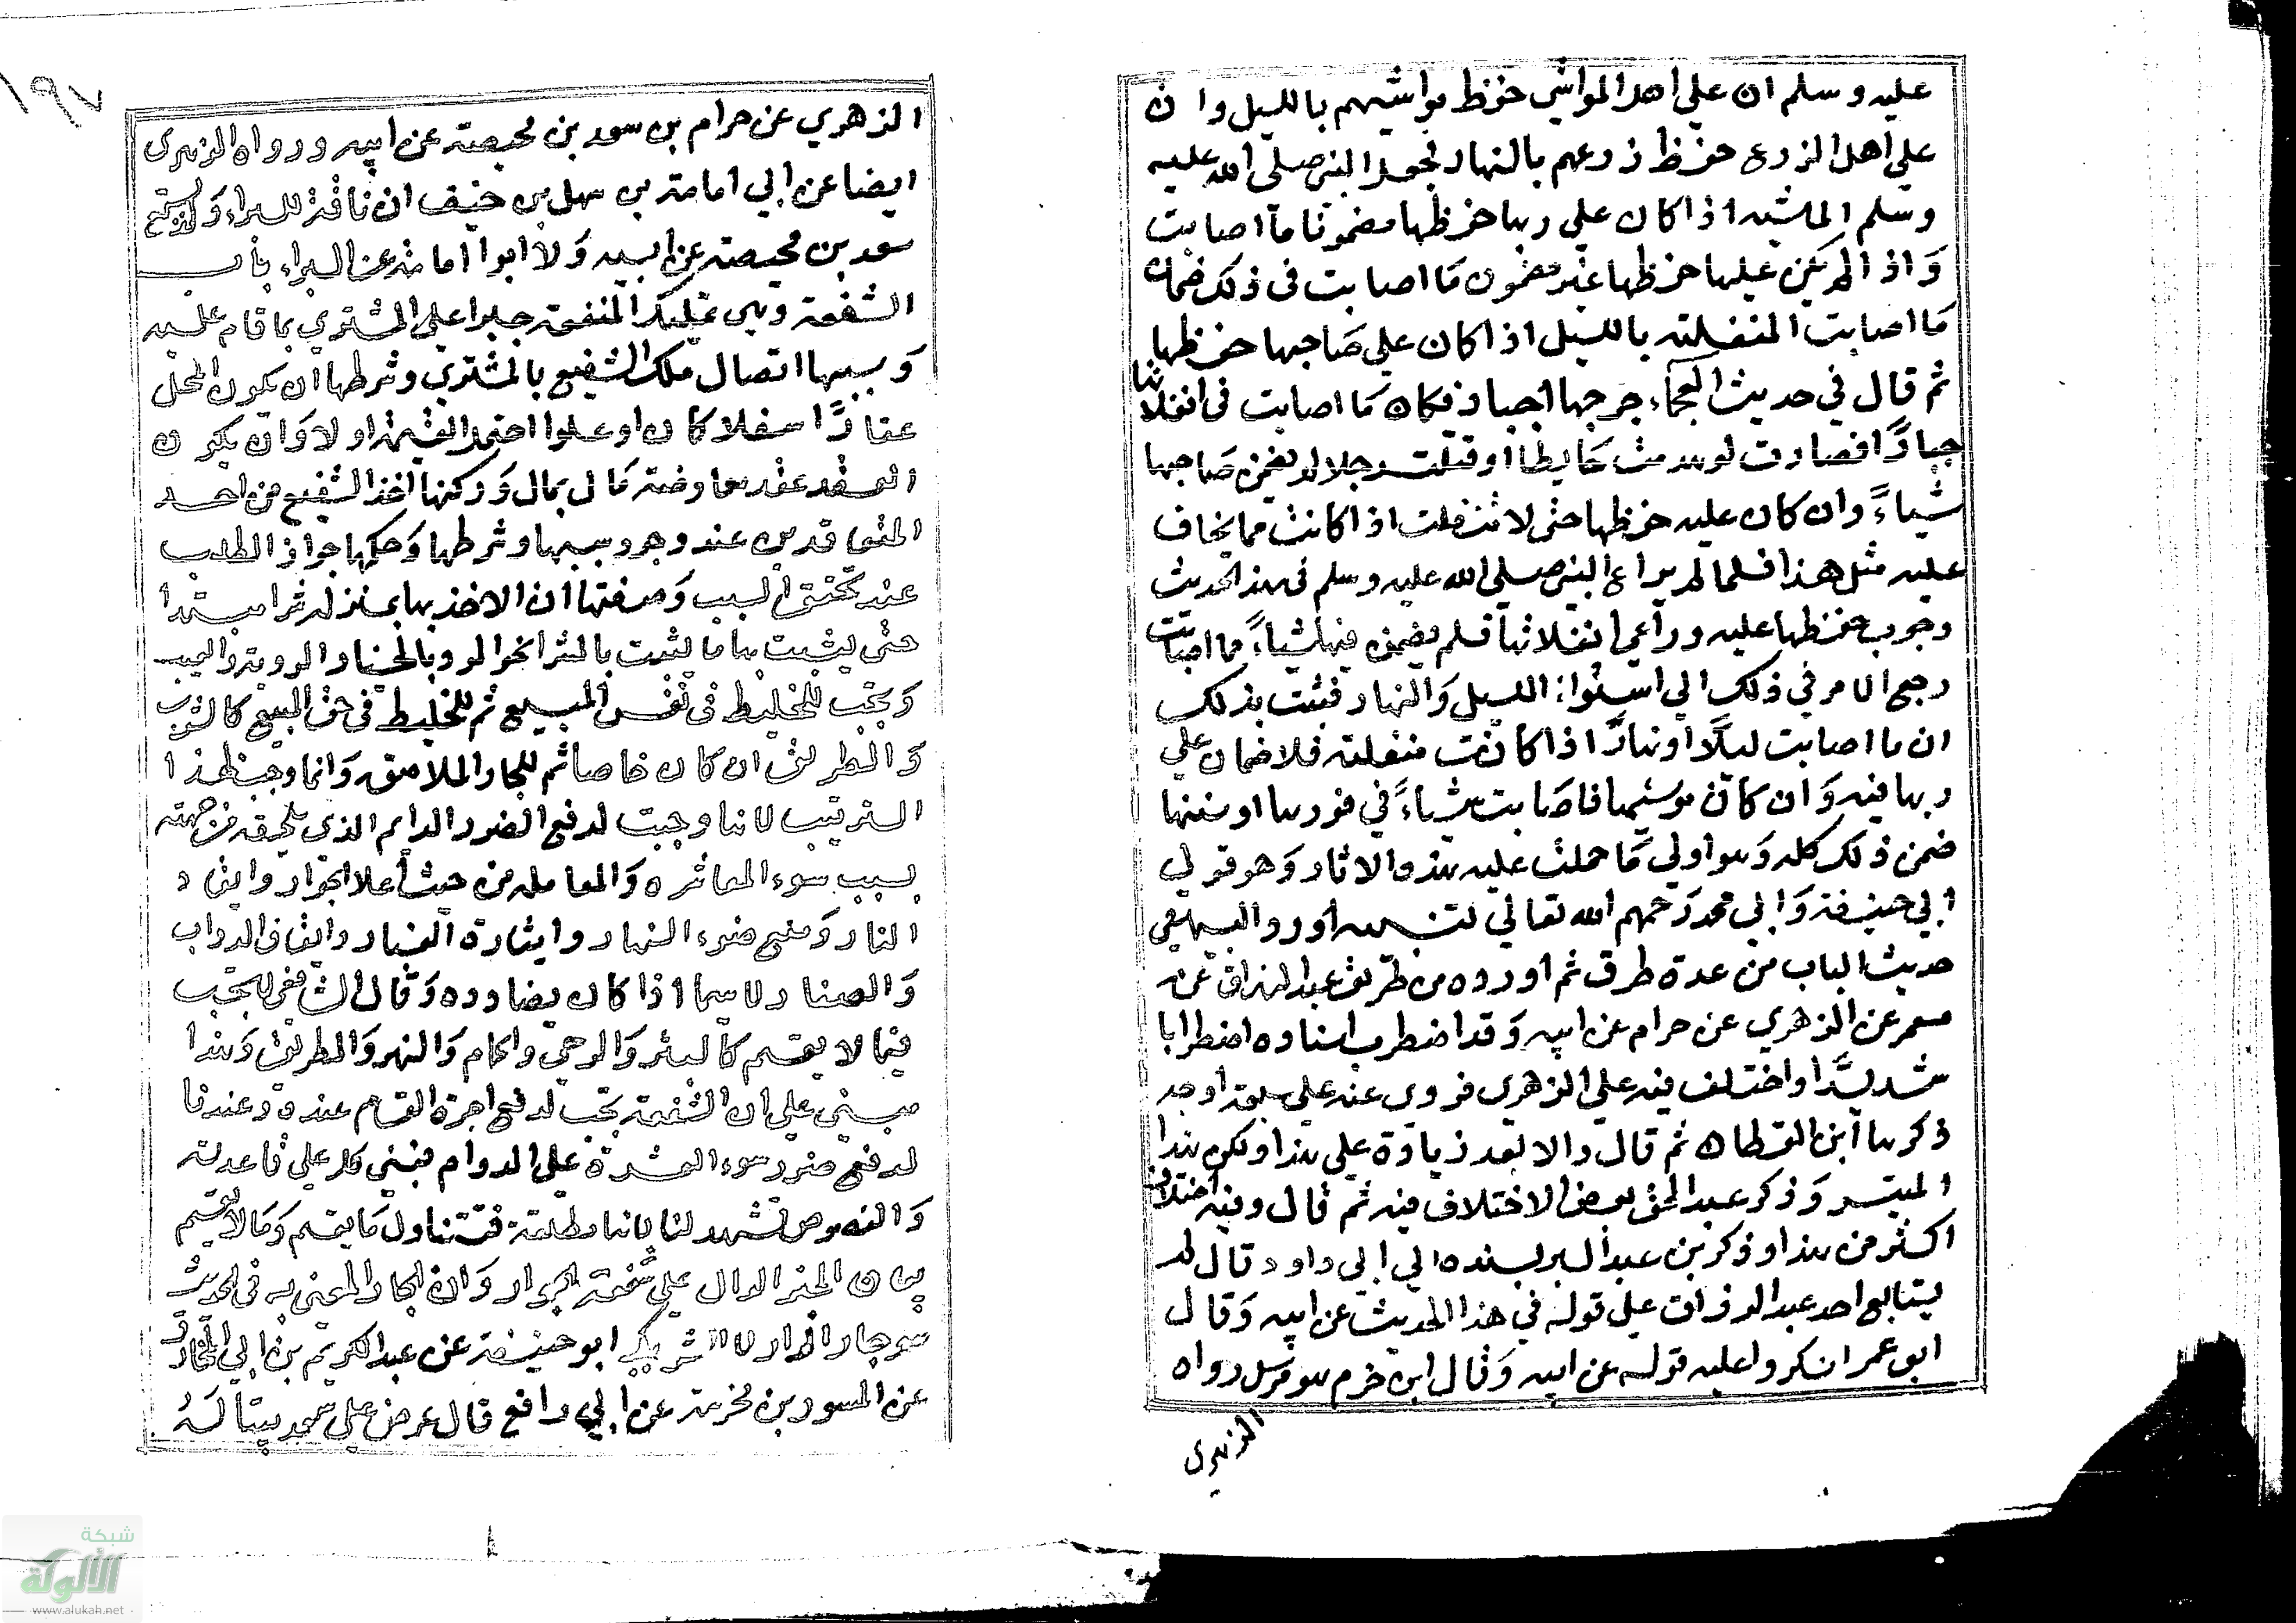 عليه وسلم ان على اهل المواشي حفظ مواشيهم بالليل وان
على اهل الزرع حفظ زرعهم بالنهار فجعل النبي صلى الله عليه
وسلم الماشية اذا كان على ربها حفظها مضمونا ما اصابت
وَاذا لم يكن عليها حفظها غير مضمون مَا اصابت في ذلك ضمان
مَا اصابت المنفلتة بالليل اذا كان على صَاحبها حفظها
ثم قال في حديث العجماء جرحها جبار فكان مَا اصابت في انفلاتها
جبارًا فصارت لو هدمت حَايطا او قتلت رجلا لم يضمن صَاحبها
شياءً وان كان عليه حفظها حتى لا تنفلت اذا كانت مما يخاف
عليه مثل هذا فلما لم يراع النبي صلى الله عليه وسلم في هذا الحديث
وجوب حفظها عليه وراعى انفلاتها فلم يضمن فيها شياءً مما اصابت
رجع الامر في ذلك الي استواء الليل وَالنهار فثبت بذلك
ان ما اصابت ليلًا او نهارًا اذا كانت منفلتة فلا ضمان علي
ربها فيه وَان كان هو سيبها فاصَابت شياءً في فورها او سننها
ضمن ذلك كله وَهو اولي مَا حملت عليه هذه الاثار وَهو قول
ابي حنيفة وَابي محمد رَحمهم الله تعالي تنبيه اورد البيهقي
حديث الباب من عدة طرق ثم اورده من طريق عبد الرزاق عن
معمر عن الزهري عن حرام عن ابيه وَقد اضطرب اسناده اضطرابا
شديدًا واختلف فيه علي الزهري فروي عنه علي سبعة اوجه
ذكرها ابن القطان ثم قال والا بعد زيادة علي هذا ولكن هذا
المتيسر وَذكر عبد الحق بعض الاختلاف فيه ثم قال وفيه اختلاف
اكثر من هذا وذكر بن عبد البر بسنده الي ابي داود قال لم
يتابع احد عبد الرزاق علي قوله في هذا الحديث عن ابيه وَقال
ابو عمر انكروا عليه قوله عن ابيه وَقال ابن حزم هو مرسل رواه
الزهري
١٩٧
الزهري عن حرام بن سعد بن محيصة عن ابيه ورواه الزهري
ايضا عن ابي امامة بن سهل بن حنيف ان ناقة للبراء وَلم يسمع
سعد بن محيصة عن ابيه وَلا ابوا امامة عن البراء باب
الشفعة وهي تمليك المنفعة جبرا علي المشتري بما قام عليه
وَسببها اتصال ملك الشفيع بالمشتري وشرطها ان يكون المحل
عقارًا سفلا كان او علوا احتمل القسمة او لا وَان يكون
العقد عقد معاوضة مَال بمال وَركنها اخذ الشفيع من احد
المتعاقدين عند وجود سببها وشرطها وَحكمها جواز الطلب
عند تحقق السبب وَصفتها ان الاخذ بها بمنزلة شرا مبتدا
حتى يثبت بها ما يثبت بالشرا نحو الرد بالخيار الروية والعيب
وَتجب للخليط في نفس المبيع ثم للخليط في حق المبيع كالشرب
وَالطريق ان كان خاصا ثم للجار الملاصق وَانما وجبت لهذا
الترتيب لانها وجبت لدفع الضرر الدايم الذي يلحقه من جهته
بسبب سوء المعاشرة وَالمعاملة من حيث اعلا الجدار وايقاد
النار وَمنع ضوء النهار وايثارة الغبار وايقاف الدواب
وَالصغار لا سيما اذا كان يضادده وَقال الشافعي لا تجب
فيما لا يقسم كالبئر وَالرحى والحمام وَالنهر وَالطريق وَهذا
مبني علي ان الشفعة تجب لدفع اجرة القسام عنده وعندنا
لدفع ضرر سوء العشرة علي الدوام فبني كل علي قاعدته
وَالنصوص تشهد لنا بانها مطلقة فتتناول مَا يقسم وَمَا لا يقسم
بيان الخبر الدال علي شفعة الجوار وَان الجار المعني به في الحديث
هو جار الدار لا الشريك ابو حنيفة عن عبد الكريم بن ابي المخارق
عن المسور بن مخرمة عن ابي رافع قال عرض علي سعد بيتا لَهُ
شبكة
الألوكة
www.alukah.net